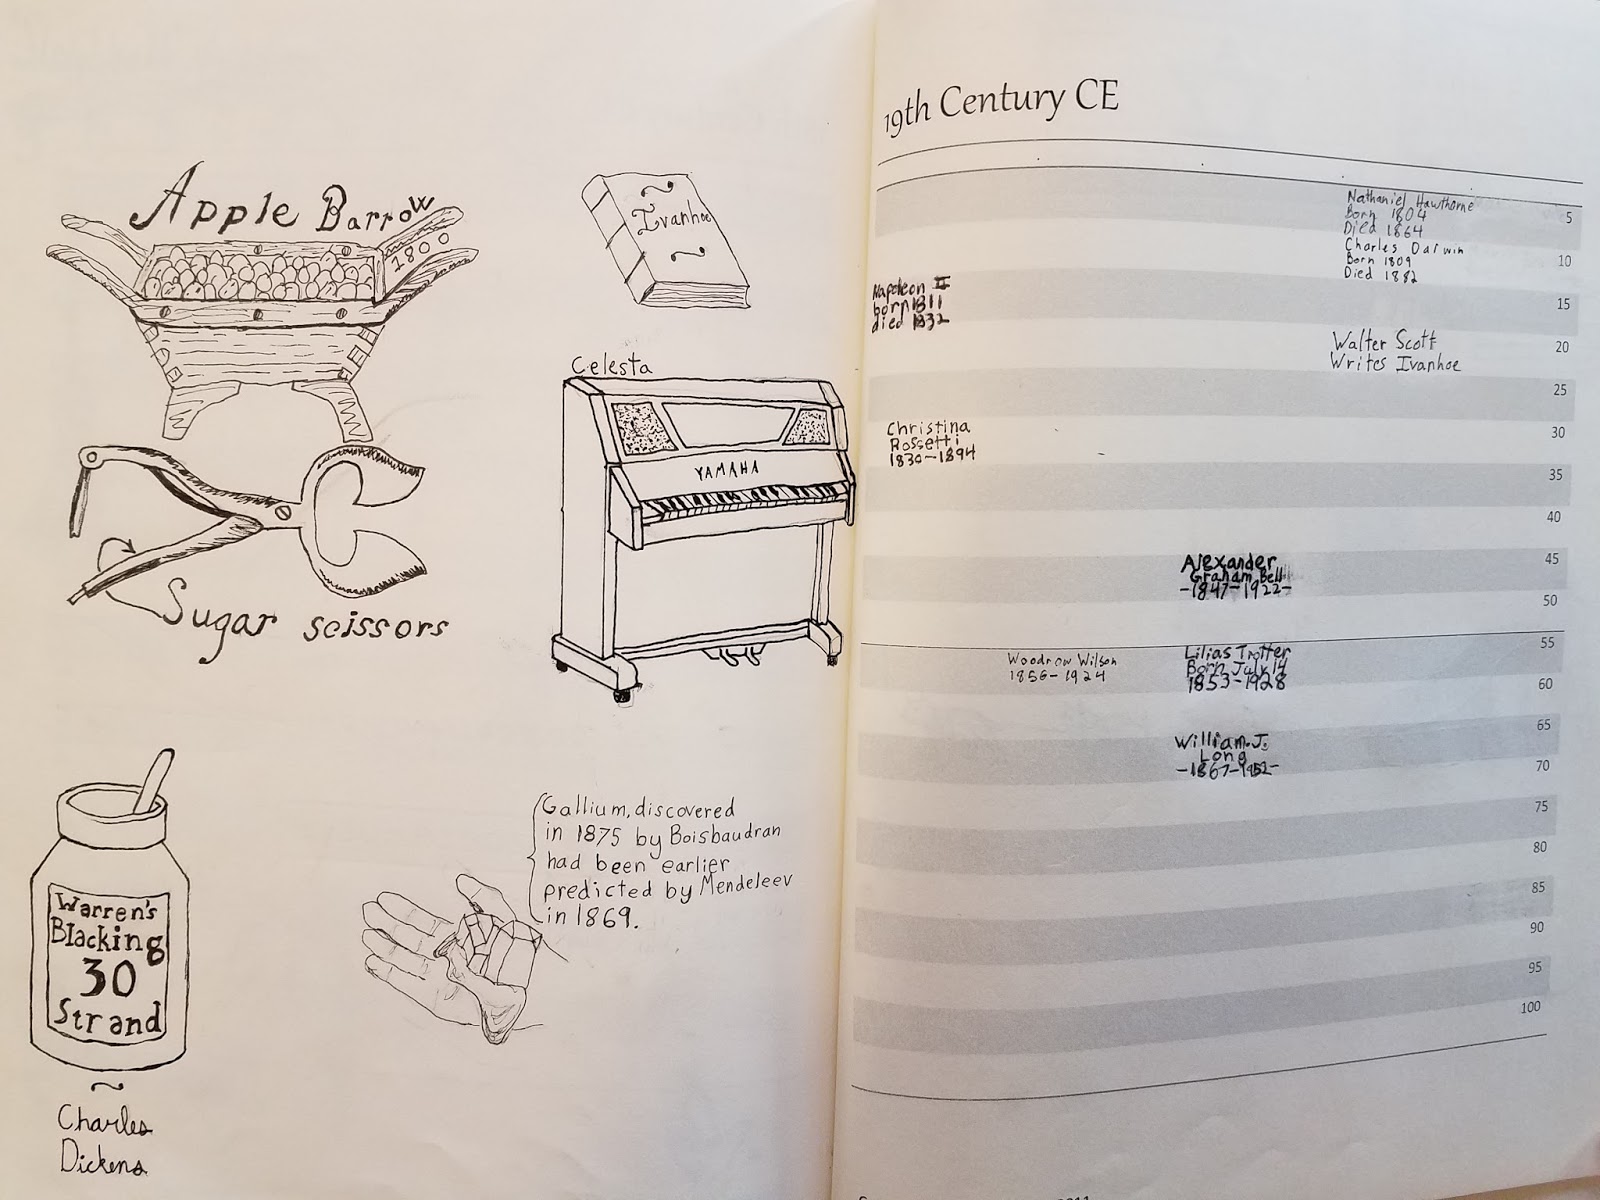 Apple Barrow
1800
Ivanhoe
Celesta
YAMAHA
Sugar scissors
Warren's
Blacking
30
Strand
Charles
Dickens
Gallium, discovered
in 1875 by Boisbaudran
had been earlier
predicted by Mendeleev
in 1869.
19th Century CE
Nathaniel Hawthorne
Born 1804
Died 1864
5
Charles Darwin
Born 1809
Died 1882
10
Napoleon II
born 1811
died 1832
15
Walter Scott
Writes Ivanhoe
20
25
Christina
Rossetti
1830-1894
30
35
40
Alexander
Graham Bell
-1847-1922-
45
50
55
Woodrow Wilson
1856-1924
Lilias Trotter
Born July 14
1853-1928
60
65
William J.
Long
-1867-1952-
70
75
80
85
90
95
100